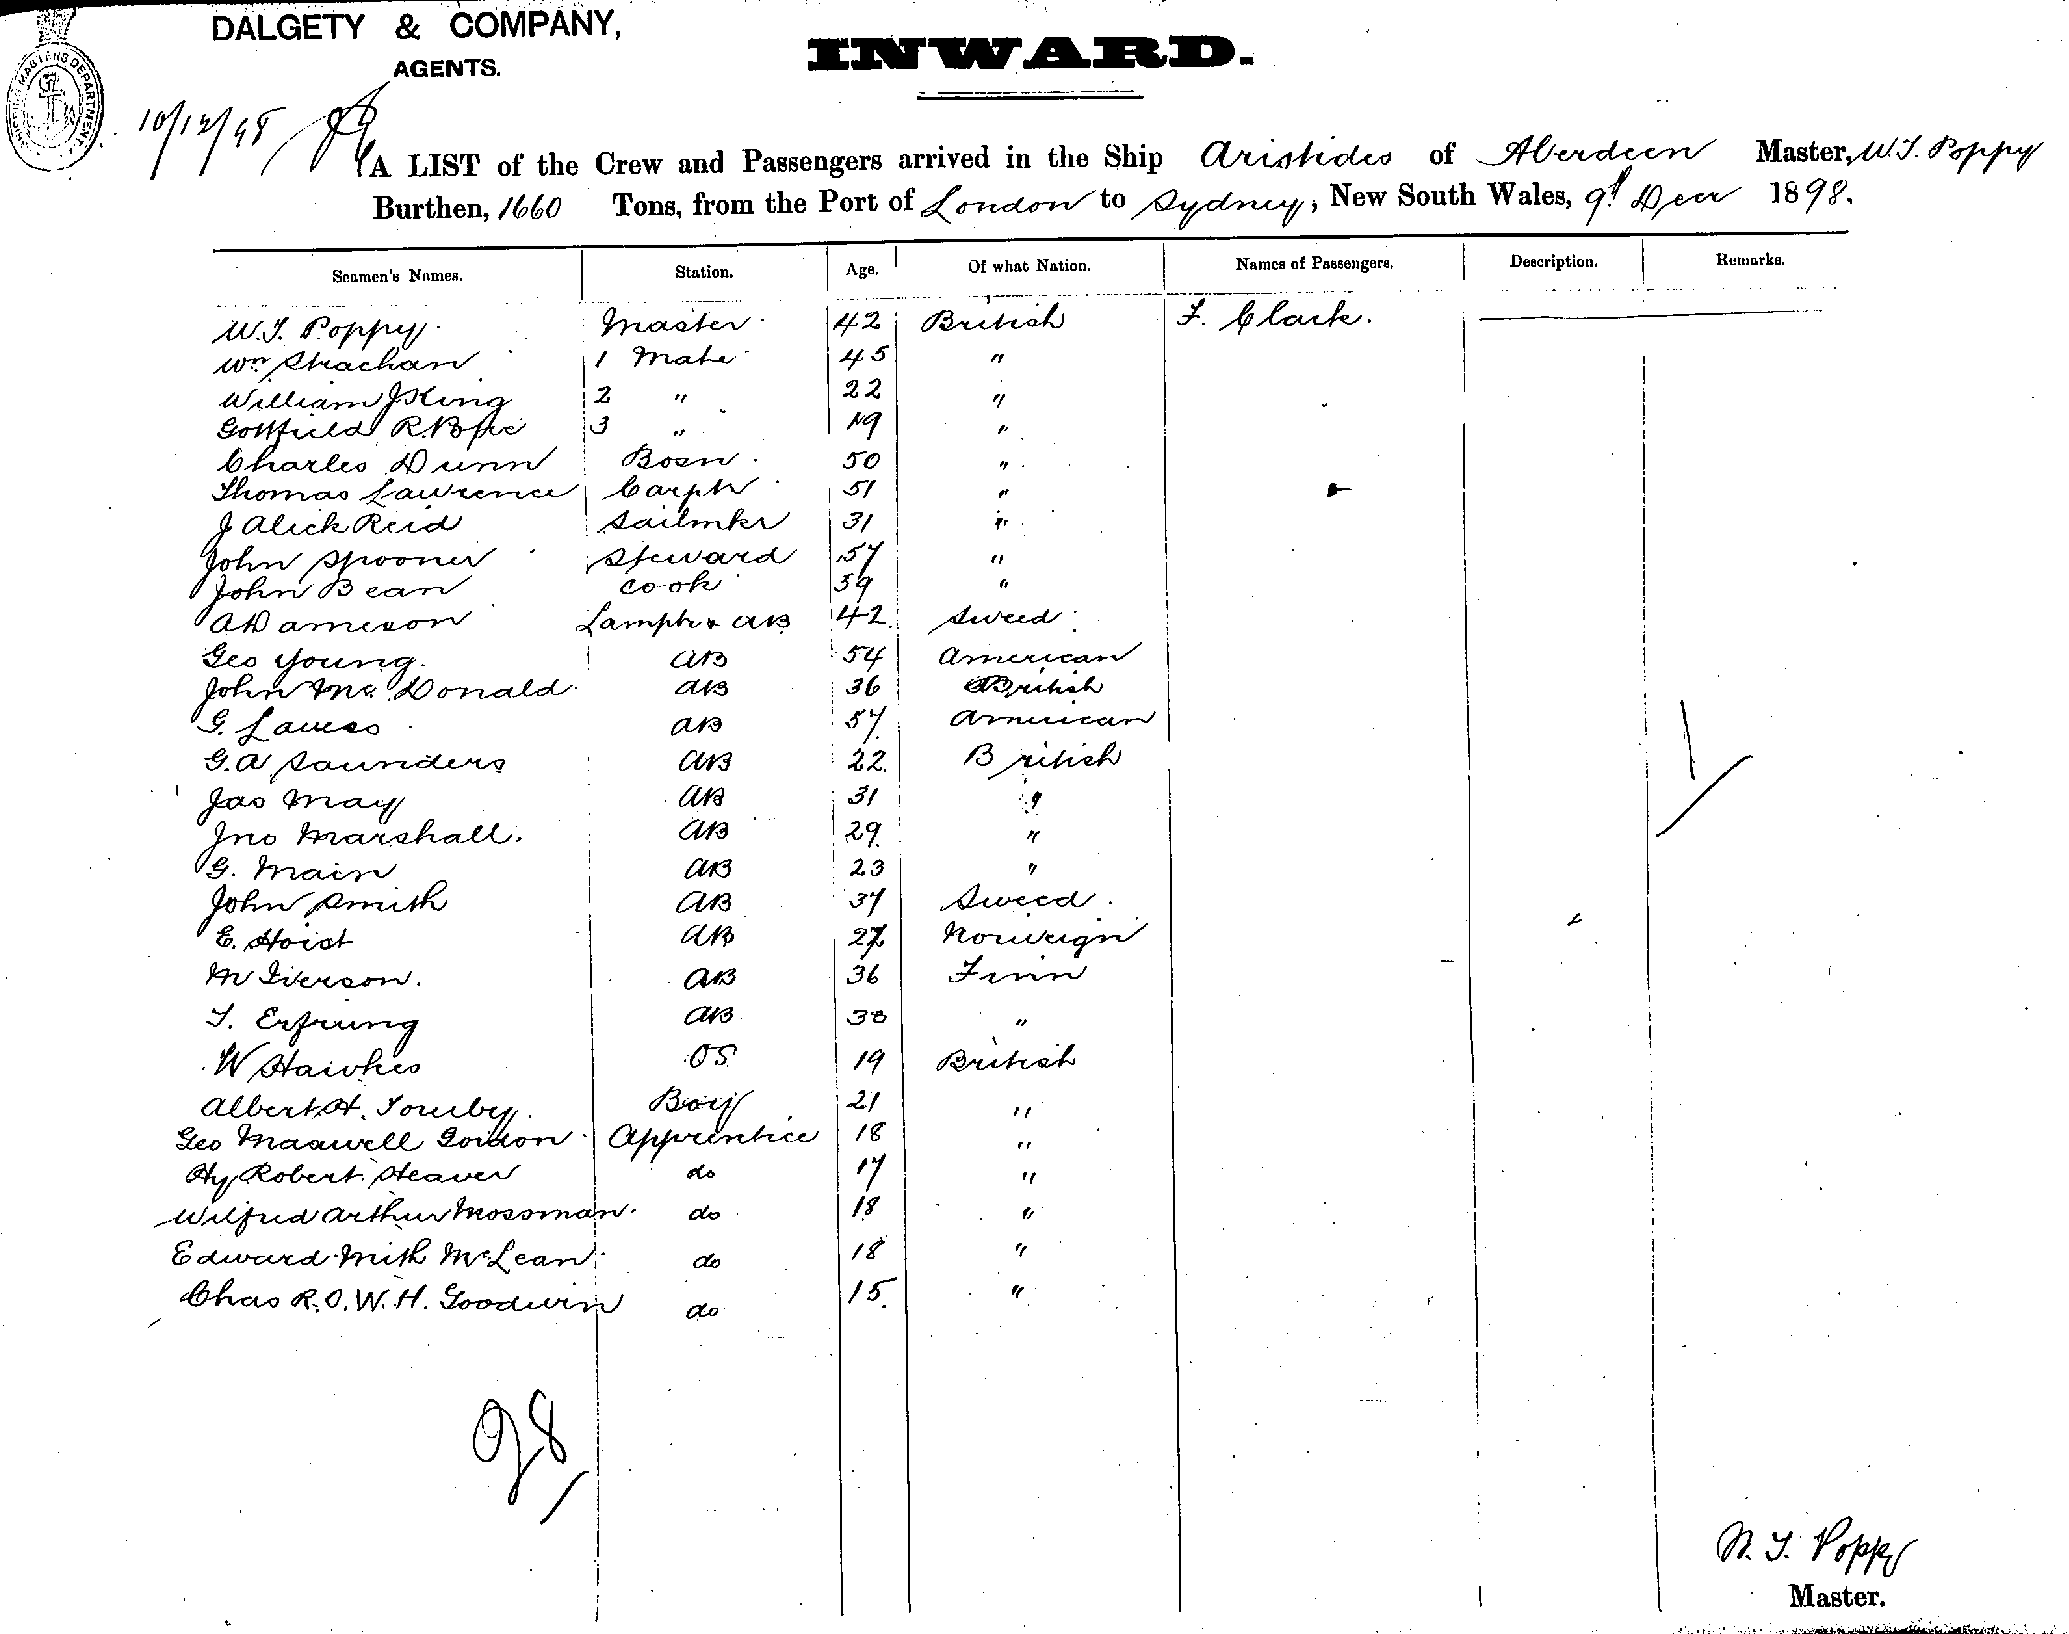 DALGETY & COMPANY,
AGENTS.
INWARD.
10/12/98
A LIST of the Crew and Passengers arrived in the Ship Aristides of Aberdeen Master, W.T. Poppy
Burthen, 1660 Tons, from the Port of London to Sydney, New South Wales, 9th Decr 1898.
Seamen's Names. Station. Age. Of what Nation. Names of Passengers. Description. Remarks.
W.T. Poppy Master 42 British F. Clark.
Wm Strachan 1 Mate 45 "
William J King 2 " 22 "
R. 3 " 19 "
Charles Dunn Bosn 50 "
Thomas Lawrence Carptr 51 "
J Alick Reid Sailmkr 31 "
John Spooner Steward 57 "
John Bean Cook 59 "
A Dameson Lamptr & AB 42 Sweed
Geo Young AB 54 American
John McDonald AB 36 British
G. AB 57 American
G.A Saunders AB 22 British
Jas May AB 31 "
Jno Marshall. AB 29 "
G. Main AB 23 "
John Smith AB 37 Sweed.
E. Hoist AB 27 Norweign
M Iverson. AB 36 Finn
T. AB 38 "
W Hawkes OS 19 British
Albert H. Boy 21 "
Geo Maxwell Gordon Apprentice 18 "
Hy Robert Heaver do 17 "
Wilfred Arthur Mossman. do 18 "
Edward Mith McLean do 18 "
Chas R.O.W.H. Goodwin do 15 "
28
W. T. Poppy
Master.